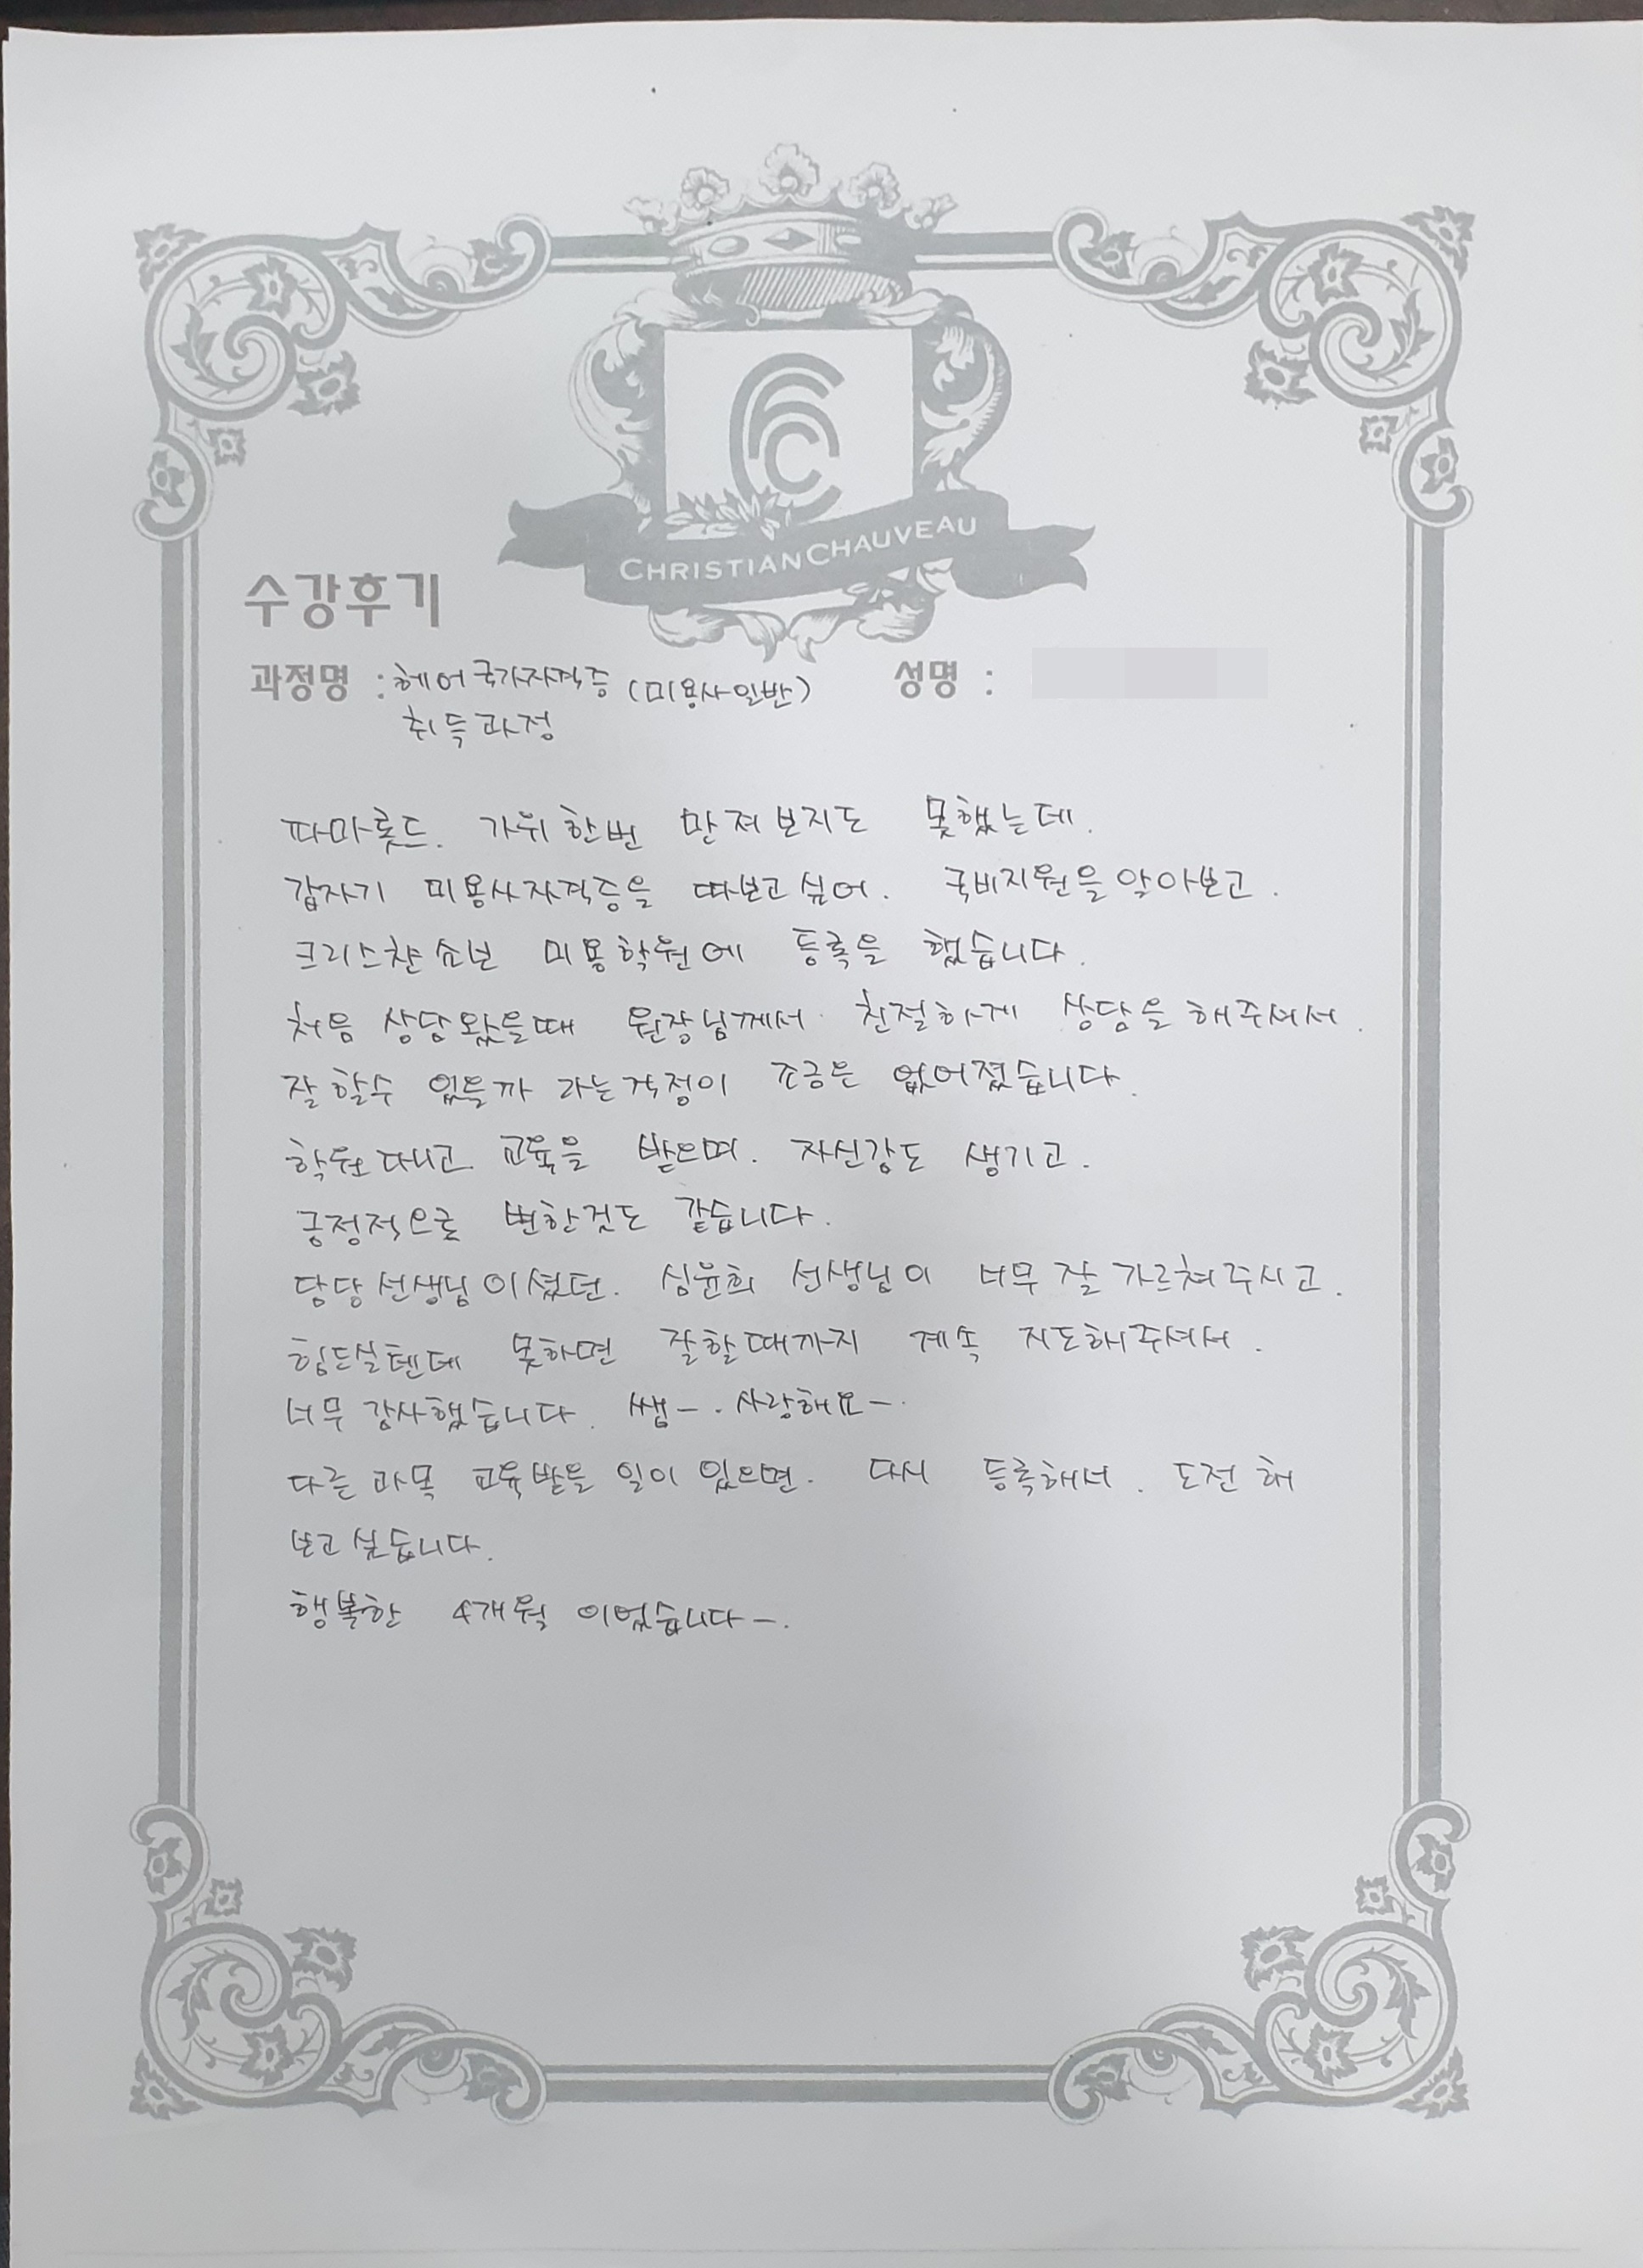 CHRISTIAN CHAUVEAU
수강후기
과정명 : 헤어국가자격증 (미용사일반) 성명 :
취득과정
파마롯드. 가위 한번 만져보지도 못했는데.
갑자기 미용사자격증을 따보고싶어. 국비지원을 알아보고.
크리스챤쇼보 미용학원에 등록을 했습니다.
처음 상담왔을때 원장님께서 친절하게 상담을 해주셔서.
잘할수 있을까 라는걱정이 조금은 없어졌습니다.
학원다니고 교육을 받으며. 자신감도 생기고.
긍정적으로 변한것도 같습니다.
담당선생님이셨던. 심윤희 선생님이 너무 잘 가르쳐주시고.
힘드실텐데 못하면 잘할때까지 계속 지도해주셔서.
너무 감사했습니다. 쌤-. 사랑해요-.
다른 과목 교육받을 일이 있으면. 다시 등록해서. 도전 해
보고싶습니다.
행복한 4개월 이었습니다-.